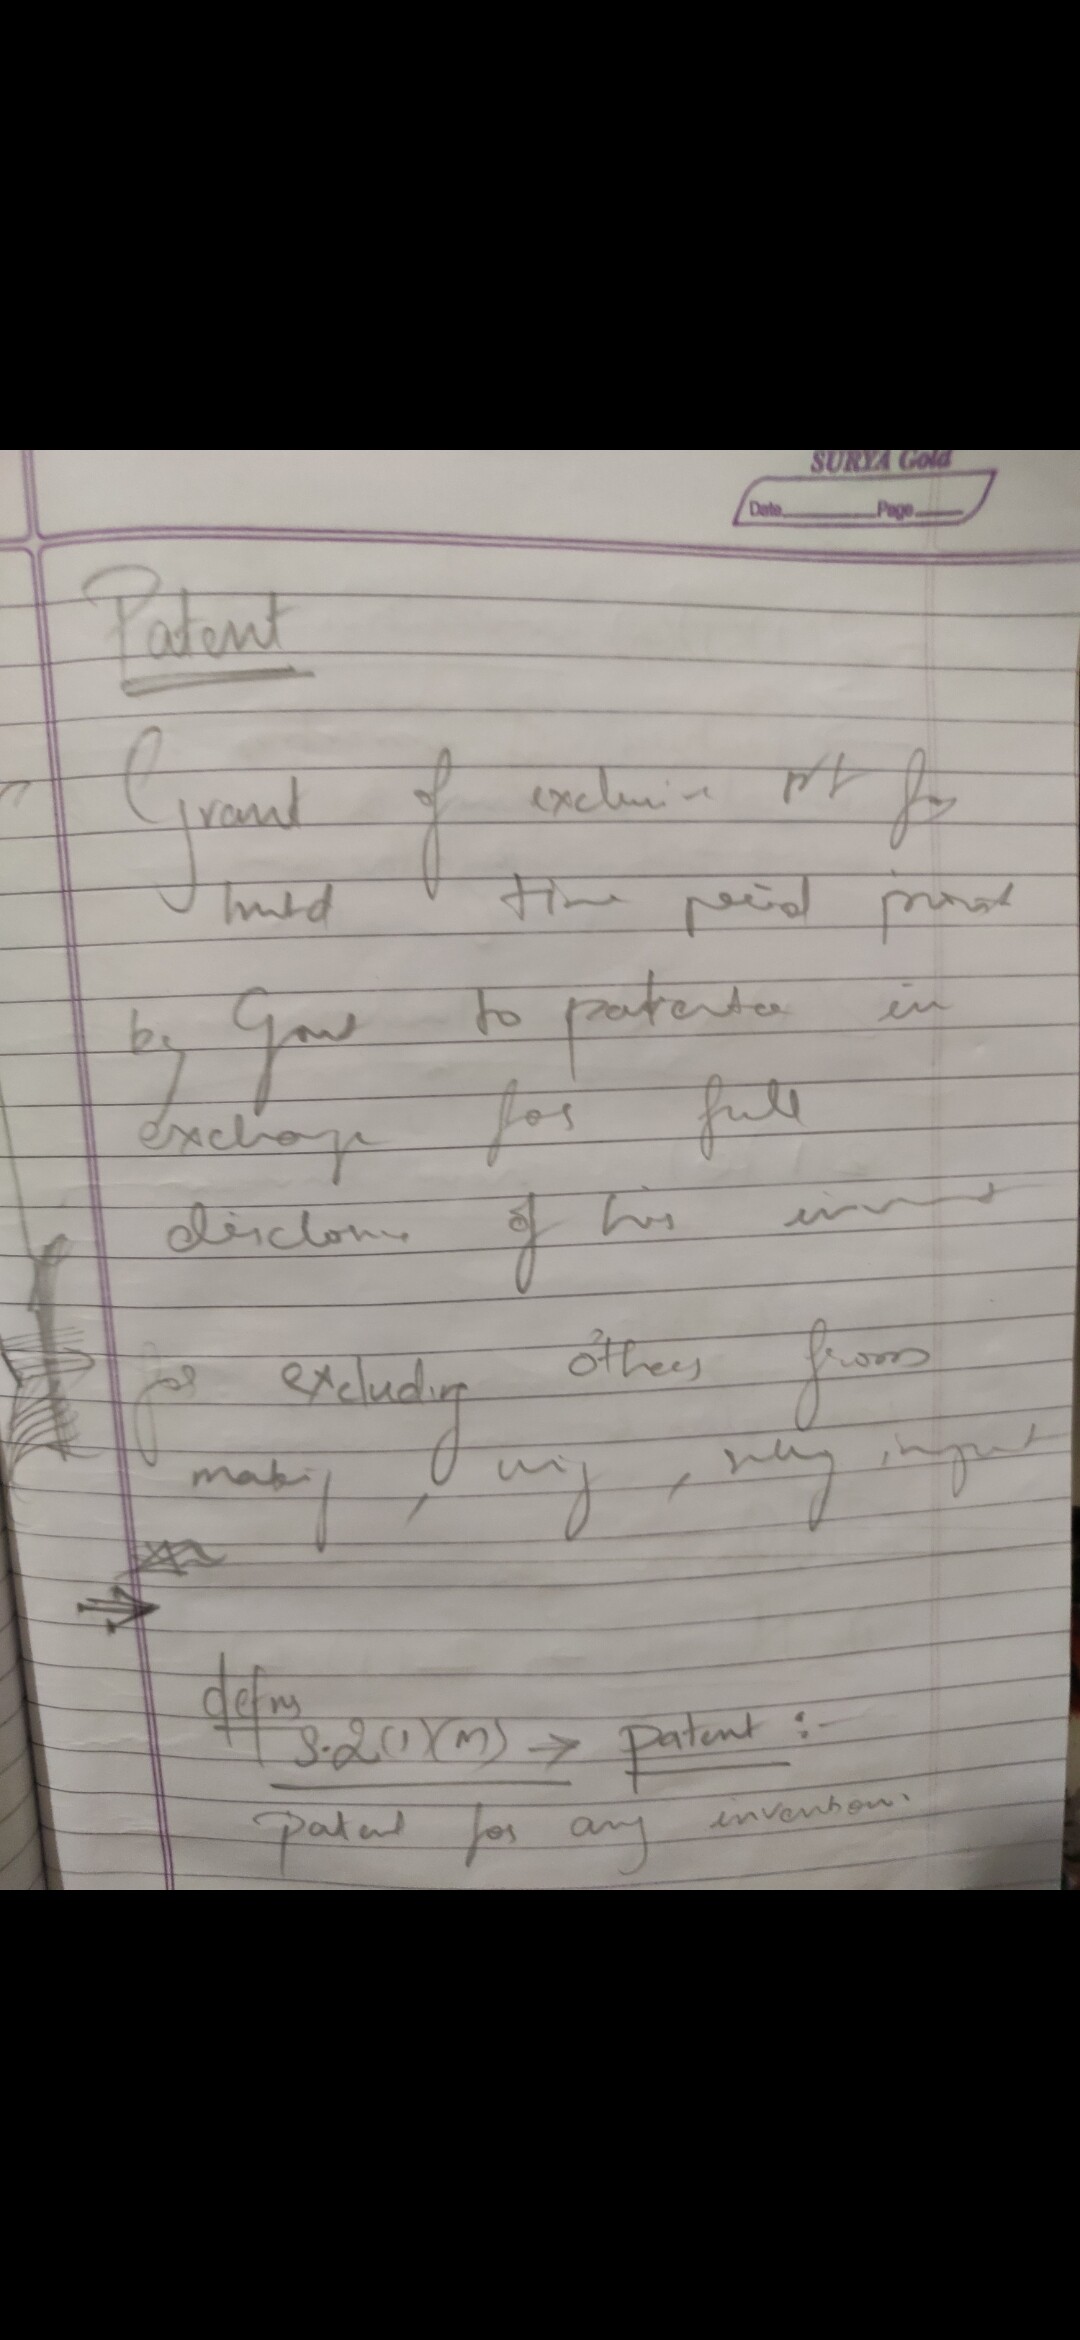 SURYA Gold
Date Page
Patent
Grant of exclusive rt for
limited time period
by Govt to patentee in
exchange for full
disclosure of his
for excluding others from
making, using, selling, import
defns
S.2(1)(m) → patent :-
patent for any invention.